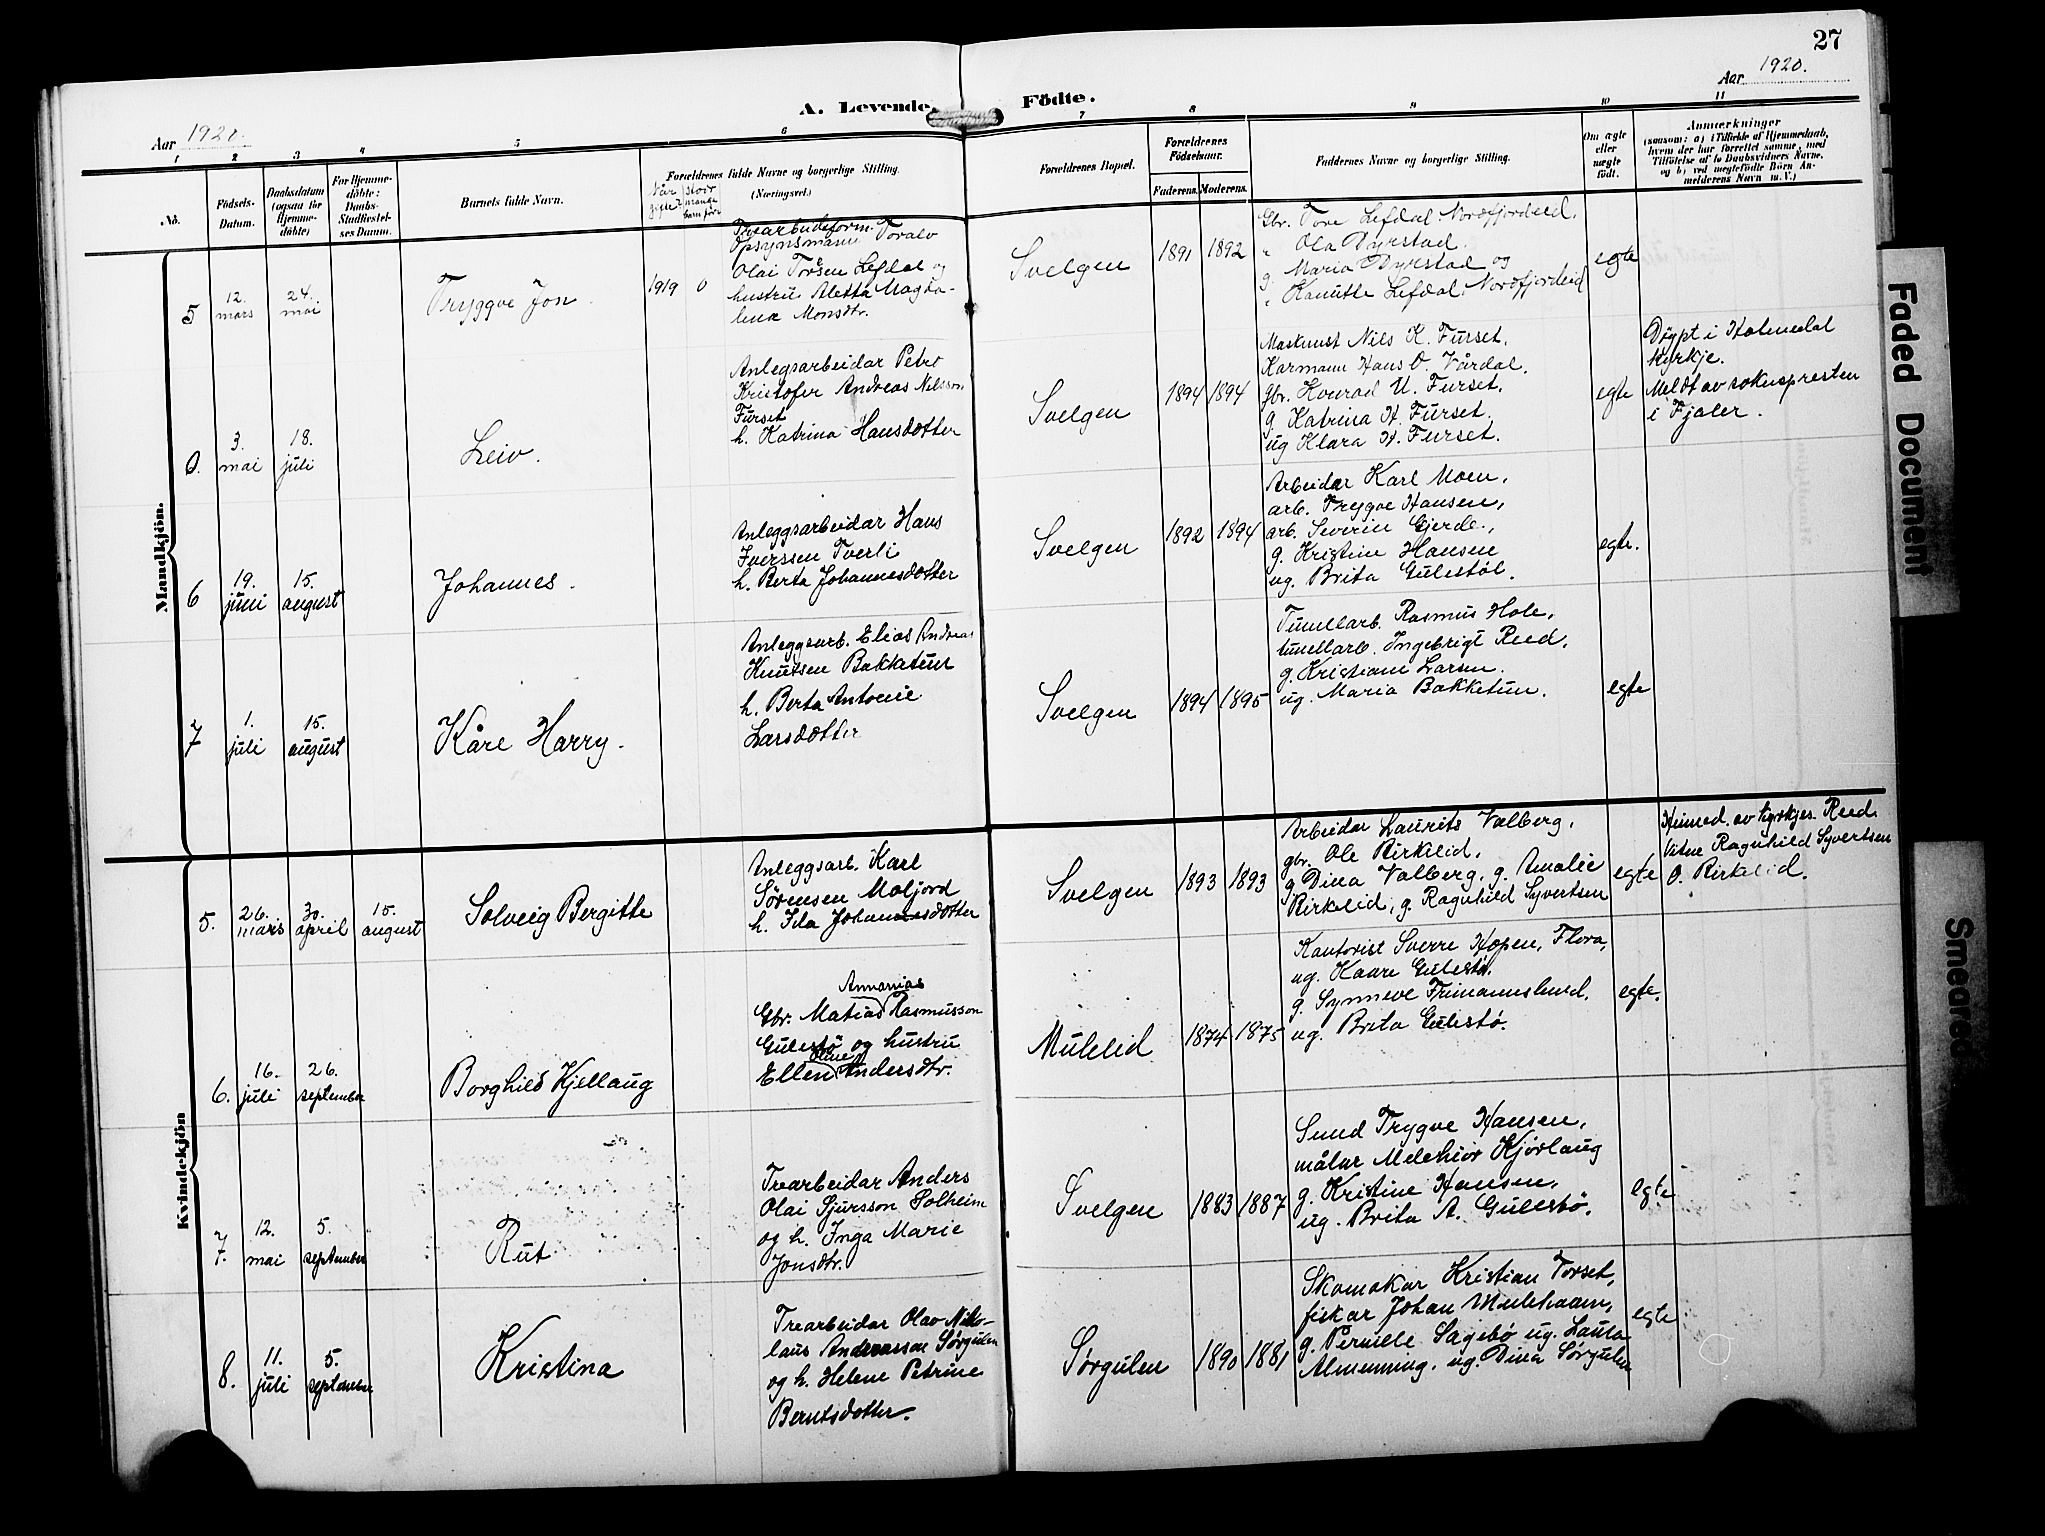 27
Aar 1920.
A. Levende Födte.
Aar 1920.
1 2 3 4 5 6 7 8 9 10 11
No.
Födsels-
Datum.
Daabsdatum
(ogsaa for
Hjemme-
döbte)
For Hjemme-
döbte:
Daabs-
Stadfæstel-
ses Datum.
Barnets fulde Navn.
Forældrenes fulde Navne og borgerlige Stilling.
(Næringsvei.)
Når
gifte?
Forældrenes Bopæl.
Forældrenes
Födselsaar.
Faderens. Moderens.
Faddernes Navne og borgerlige Stilling.
Om ægte
eller
uægte
födt.
Anmærkninger
(saasom: a) i Tilfælde af Hjemmedaab,
hvem der har forrettet samme, med
Tilföielse af to Daabsvidners Navne,
og b) ved uægtefödte Börn An-
melderens Navn m. V.)
Mandkjön.
5
12.
mars
24.
mai
Tryggve Jon.
1919 0
Opsynsmann Toralv
Olai Torsen Lefdal og
hustru Aletta Magda-
lena Monsdtr.
Svelgen
1891 1892
Gbr. Tore Lefdal Nordfjordeid.
" Ola Dyrstad.
g. Maria Dyrstad og
" Lefdal, Nordfjordeid
egte
3.
mai
18.
juli
Leiv.
Anlegsarbeidar Petro
Kristofer Andreas Nilsson
Furset
h. Katrina Hansdotter
Svelgen
1894 1894
Maskinist Nils K. Furset.
Karmann Hans O. Vårdal.
gbr. Konrad U. Furset.
g. Katrina H. Furset.
ug Klara H. Furset.
egte
Døypt i Holmedal
kyrkje.
Meldt av soknepresten
i Fjaler.
6
19.
juni
15.
august
Johannes.
Anleggsarbeidar Hans
Iverssen Tverli
h. Berta Johannesdotter
Svelgen
1892 1894
Arbeidar Karl Moen,
arb. Trygve Hansen,
arb. Severin Gjerde,
g. Kristine Hansen
ug. Brita Gulestøl.
egte.
7
1.
juli
15.
august
Kåre Harry.
Anleggsarb. Elias Andreas
Knutsen Bakketun
h. Berta Antonie
Larsdotter
Svelgen
1894 1895
Tunellarb. Rasmus Hole,
tunellarb. Ingebrigt Reed,
g. Kristiane Larsen.
ug. Maria Bakketun.
egte
Kvindekjön
5.
26.
mars
30.
april
15.
august
Solveig Bergitte
Anleggsarb. Karl
Sørensen Moljord
h. Ida Johannesdotter
Svelgen
1893 1893
Arbeidar Laurits Valberg,
gbr. Ole Birkelid,
g. Dina Valberg, g. Amalie
Birkelid, g. Ragnhild Syvertsen
egte
Heimed. av kyrkjes. Reed.
Vitne Ragnhild Syvertsen
O. Birkelid.
6.
16.
juli
26.
september
Borghild Kjellaug
Annanias
Gbr. Matias Rasmusson
Gulestø og hustru
Oline
Ellen Andersdtr.
Mulelid
1874 1875
Kontorist Sverre Hopen, Flora,
ug. Kaare Gulestø.
g. Synneve Frimannslund,
ug. Brita Gulestø.
egte.
7.
12.
mai
5.
september
Rut
Trearbeidar Anders
Olai Sjursson Solheim
og h. Inga Marie
Jonsdtr.
Svelgen
1883 1887
Smed Trygve Hansen,
målar Melchior Kjørlaug
g. Kristine Hansen,
ug. Brita A. Gulestø.
egte
8.
11.
juli
5.
september
Kristina
Trearbeidar Olav Niko-
laus Andreasson Sørgulen
og h. Helene Petrine
Berntsdotter.
Sørgulen
1890 1881
Skomakar Kristian Torset,
fiskar Johan Mulehamn,
g. Pernille Sagebø ug. Laura
Almenning, ug. Dina Sørgulen
egte
Faded Document
Smeared